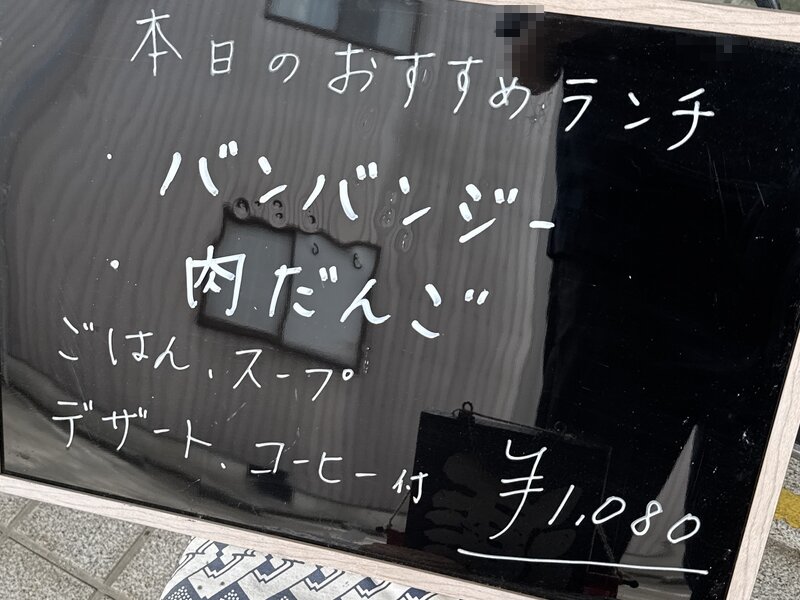 本日のおすすめランチ
・バンバンジー
・肉だんご
ごはん、スープ
デザート、コーヒー付
¥1,080